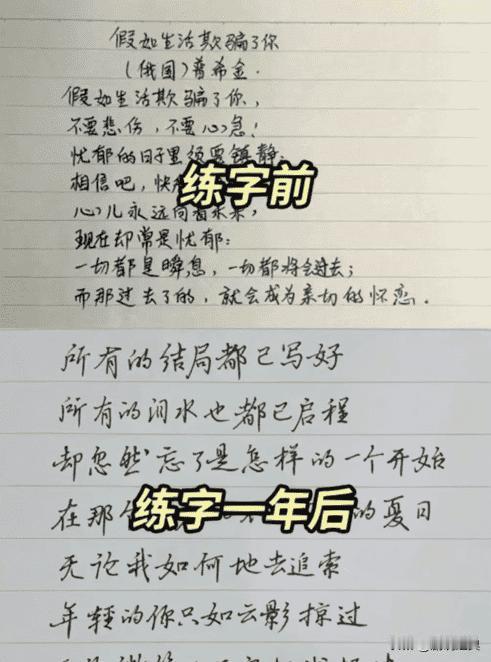 假如生活欺骗了你
(俄国)普希金.
假如生活欺骗了你，
不要悲伤，不要心急！
忧郁的日子里须要镇静：
相信吧，快
练字前
心儿永远向着未来，
现在却常是忧郁：
一切都是瞬息，一切都将会过去；
而那过去了的，就会成为亲切的怀恋.
所有的结局都已写好
所有的泪水也都已启程
却忽然忘了是怎样的一个开始
在那个 的夏日
练字一年后
无论我如何地去追索
年轻的你只如云影掠过